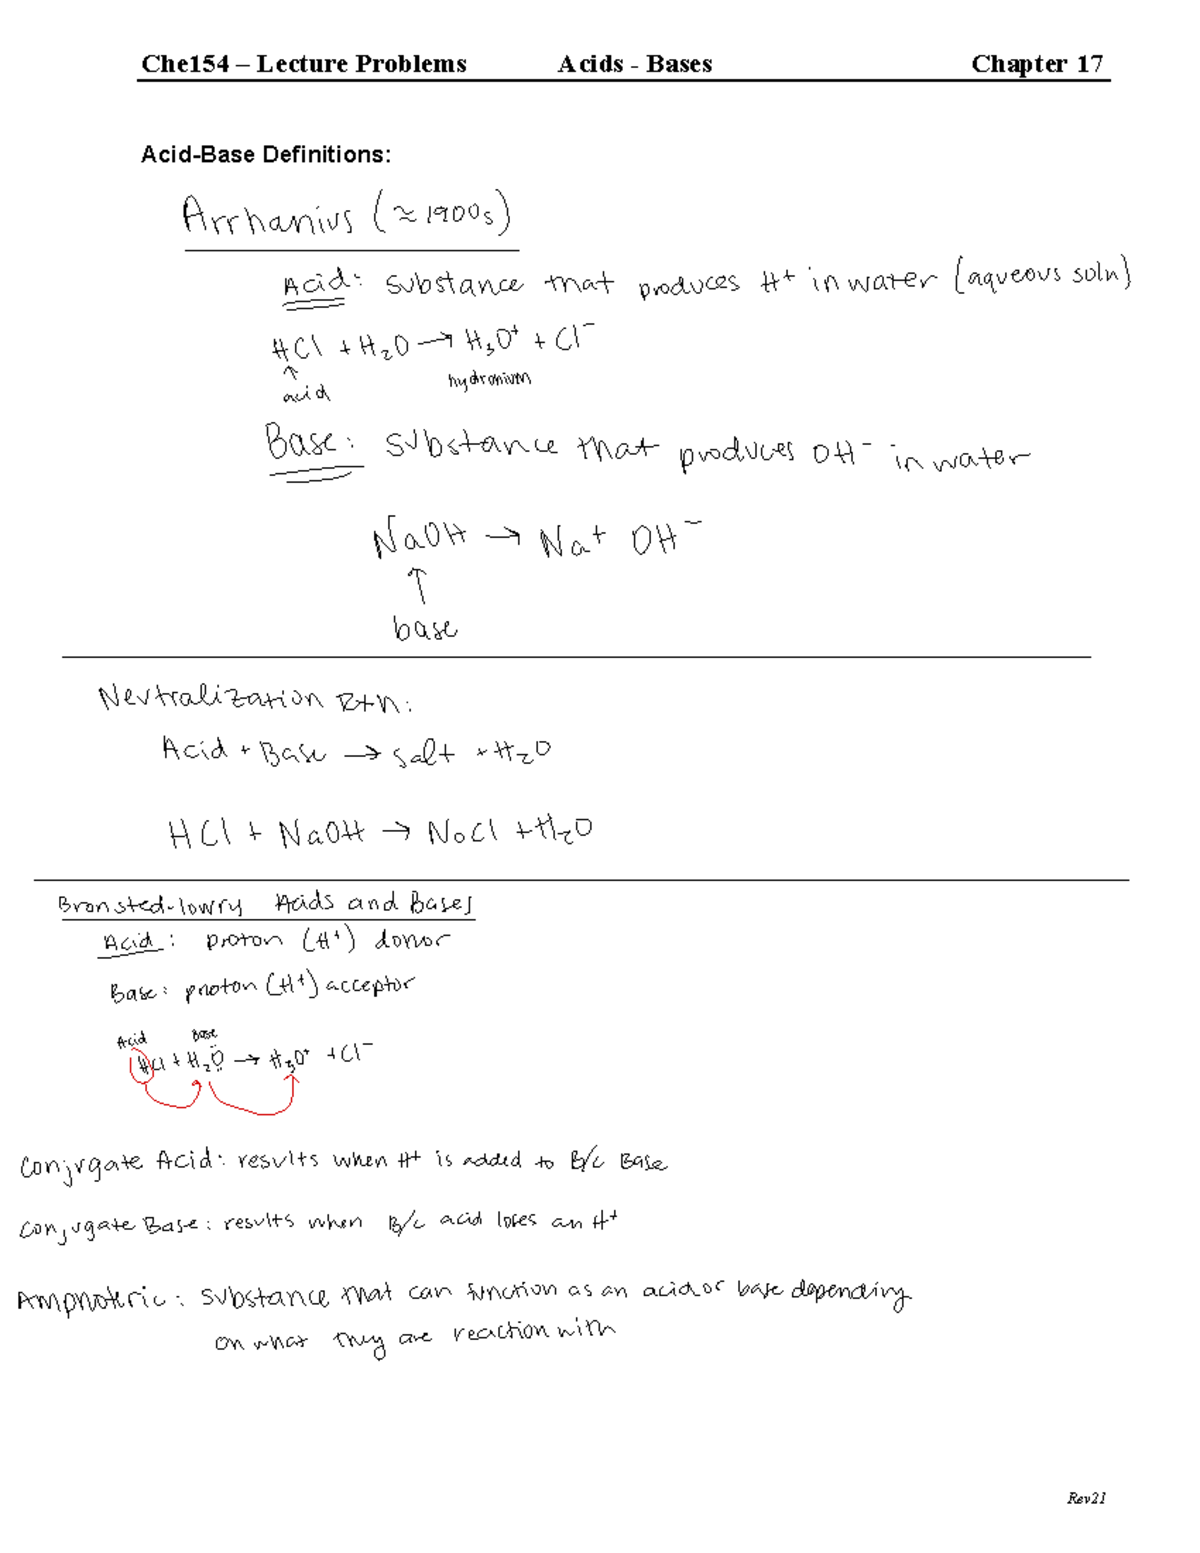 Che154 – Lecture Problems Acids - Bases Chapter 17
Acid-Base Definitions:
Arrhanius (≈1900s)
Acid: substance that produces H⁺ in water (aqueous soln)
HCl + H₂O → H₃O⁺ + Cl⁻
↑
acid hydronium
Base: substance that produces OH⁻ in water
NaOH → Na⁺ OH⁻
↑
base
Neutralization Rxn:
Acid + Base → salt + H₂O
HCl + NaOH → NaCl + H₂O
Bronsted-lowry Acids and Bases
Acid: proton (H⁺) donor
Base: proton (H⁺) acceptor
Acid Base
HCl + H₂O → H₃O⁺ + Cl⁻
Conjugate Acid: results when H⁺ is added to B/L Base
Conjugate Base: results when B/L acid loses an H⁺
Amphoteric: substance that can function as an acid or base depending
on what they are reaction with
Rev21